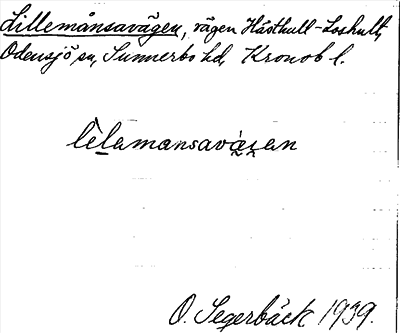 Lillemånsavägen, vägen Hästhult-Loshult,
Odensjö sn, Sunnerbo hd, Kronob l.
lèlamansavàʒan
O. Segerbäck 1939.